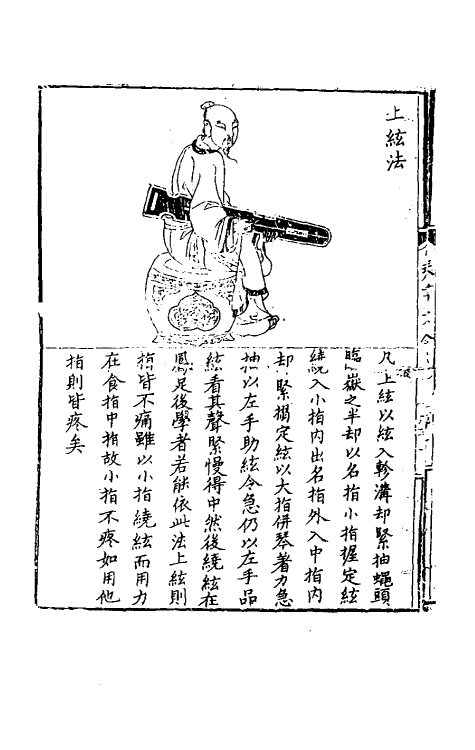 上絃法
凡上絃以絃入軫溝却緊抽蠅頭
臨嶽之半却以名指小指握定絃
繞入小指內出名指外入中指內
却緊搊定絃以大指併琴著力急
抽以左手助絃令急仍以左手品
絃看其聲緊慢得中然後繞絃在
鳳足後學者若能依此法上絃則
指皆不痛雖以小指繞絃而用力
在食指中指故小指不疼如用他
指則皆疼矣